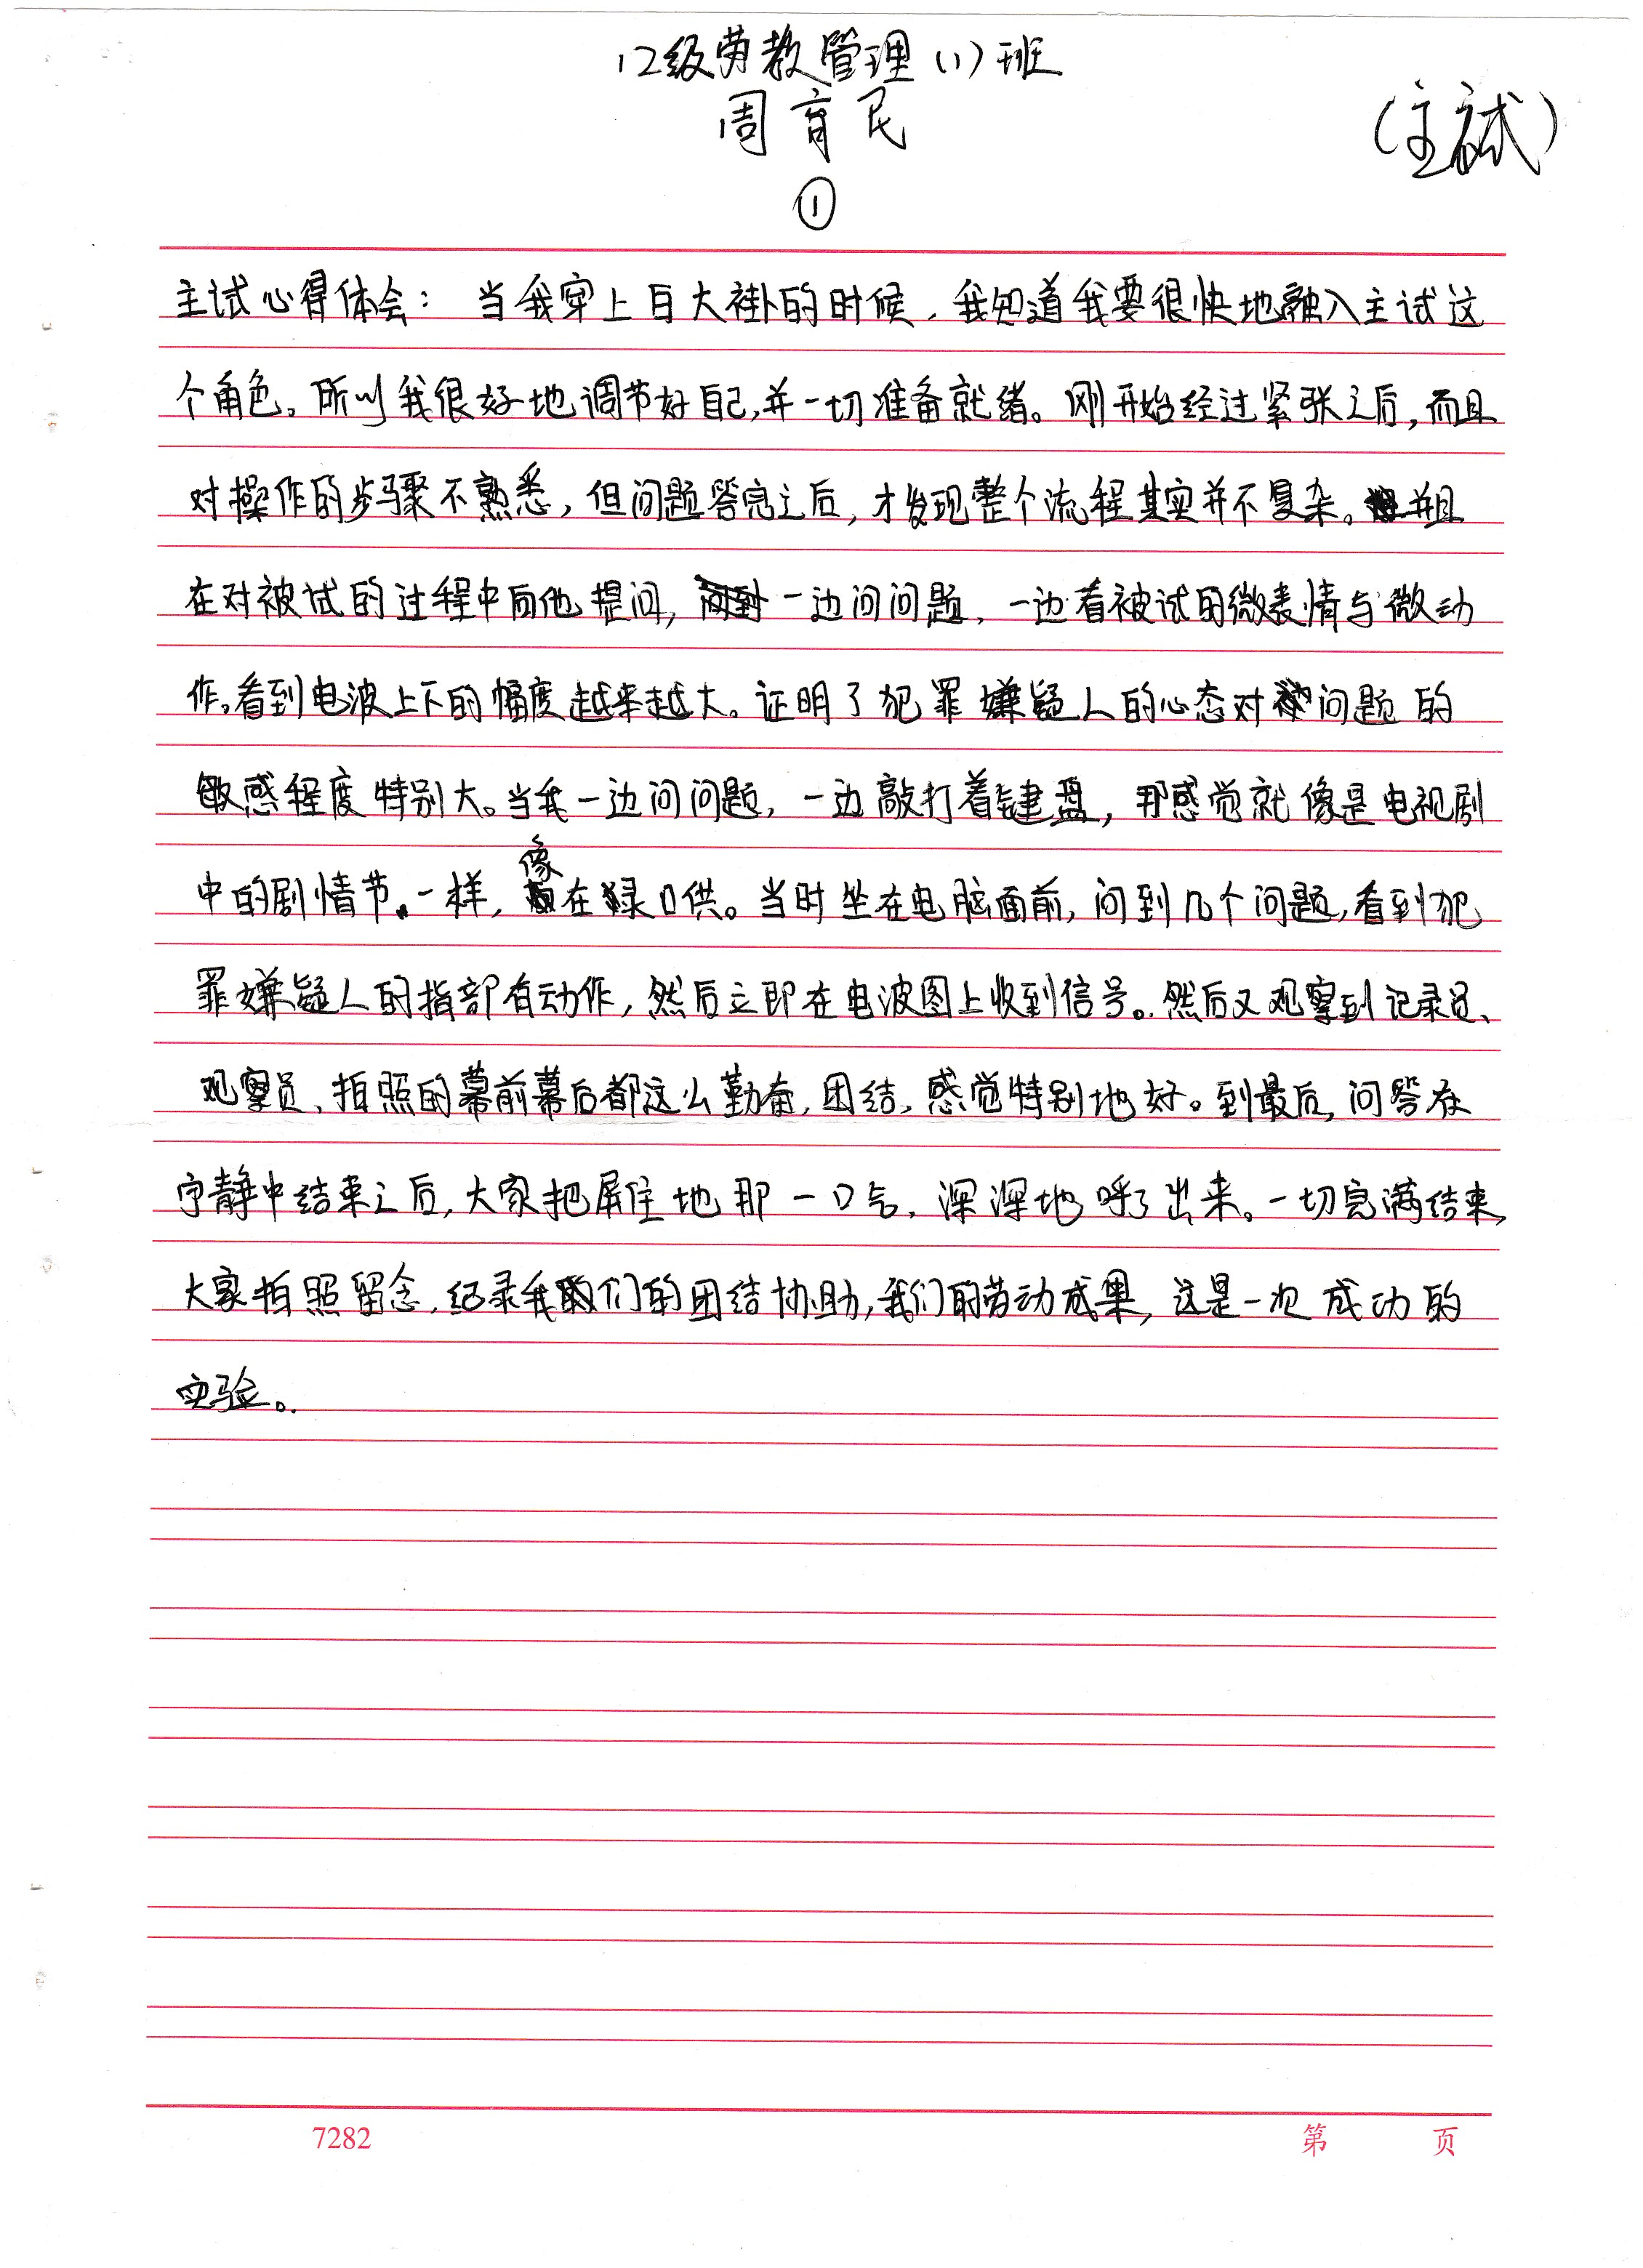 12级劳教管理(1)班
周育民
(主试)
①
主试心得体会：当我穿上白大褂的时候，我知道我要很快地融入主试这
个角色。所以我很好地调节好自己，并一切准备就绪。刚开始经过紧张之后，而且
对操作的步骤不熟悉，但问题答完之后，才发现整个流程其实并不复杂。并且
在对被试的过程中向他提问，一边问问题，一边看被试的微表情与微动
作。看到电波上下的幅度越来越大。证明了犯罪嫌疑人的心态对问题的
敏感程度特别大。当我一边问问题，一边敲打着键盘，那感觉就像是电视剧
中的剧情节。一样，像在录口供。当时坐在电脑面前，问到几个问题，看到犯
罪嫌疑人的指部有动作，然后立即在电波图上收到信号。然后又观察到记录员、
观察员、拍照的幕前幕后都这么勤奋，团结，感觉特别地好。到最后，问答在
宁静中结束之后，大家把屏住地那一口气，深深地呼了出来。一切完满结束，
大家拍照留念，纪录我们的团结协助，我们的劳动成果，这是一次成功的
实验。
7282
第 页